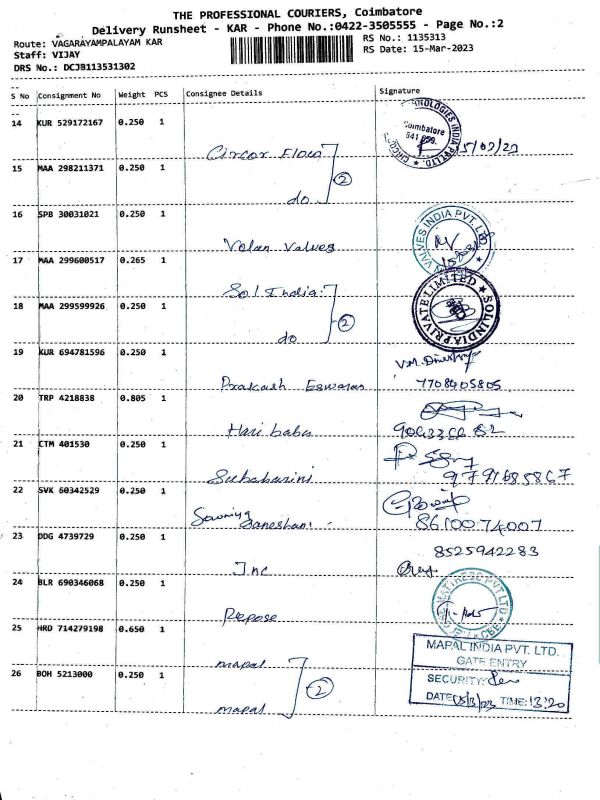 THE PROFESSIONAL COURIERS, Coimbatore
Delivery Runsheet - KAR - Phone No.:0422-3505555 - Page No.:2
Route: VAGARAYAMPALAYAM KAR
RS No.: 1135313
Staff: VIJAY
RS Date: 15-Mar-2023
DRS No.: DCJB113531302
S No Consignment No Weight PCS Consignee Details Signature
14 KUR 529172167 0.250 1
Circor Flow
15 MAA 298211371 0.250 1
2
do
16 SPB 30031021 0.250 1
Volan Valves
VALVES INDIA PVT. LTD
17 MAA 299600517 0.265 1
Sol India
SOLINDIA PRIVATE LIMITED
18 MAA 299599926 0.250 1
2
do
19 KUR 694781596 0.250 1
Prakash Eswaran
7708405805
20 TRP 4218838 0.805 1
Hari babu
21 CTM 401530 0.250 1
Subabarini
22 SVK 60342529 0.250 1
8610074007
23 DDG 4739729 0.250 1
8525942283
Inc
24 BLR 690346068 0.250 1
Repose
25 HRD 714279198 0.650 1
MAPAL INDIA PVT. LTD.
GATE ENTRY
mapal
26 BOH 5213000 0.250 1
2
SECURITY:
DATE 15/3/23 TIME: 13:20
mapal